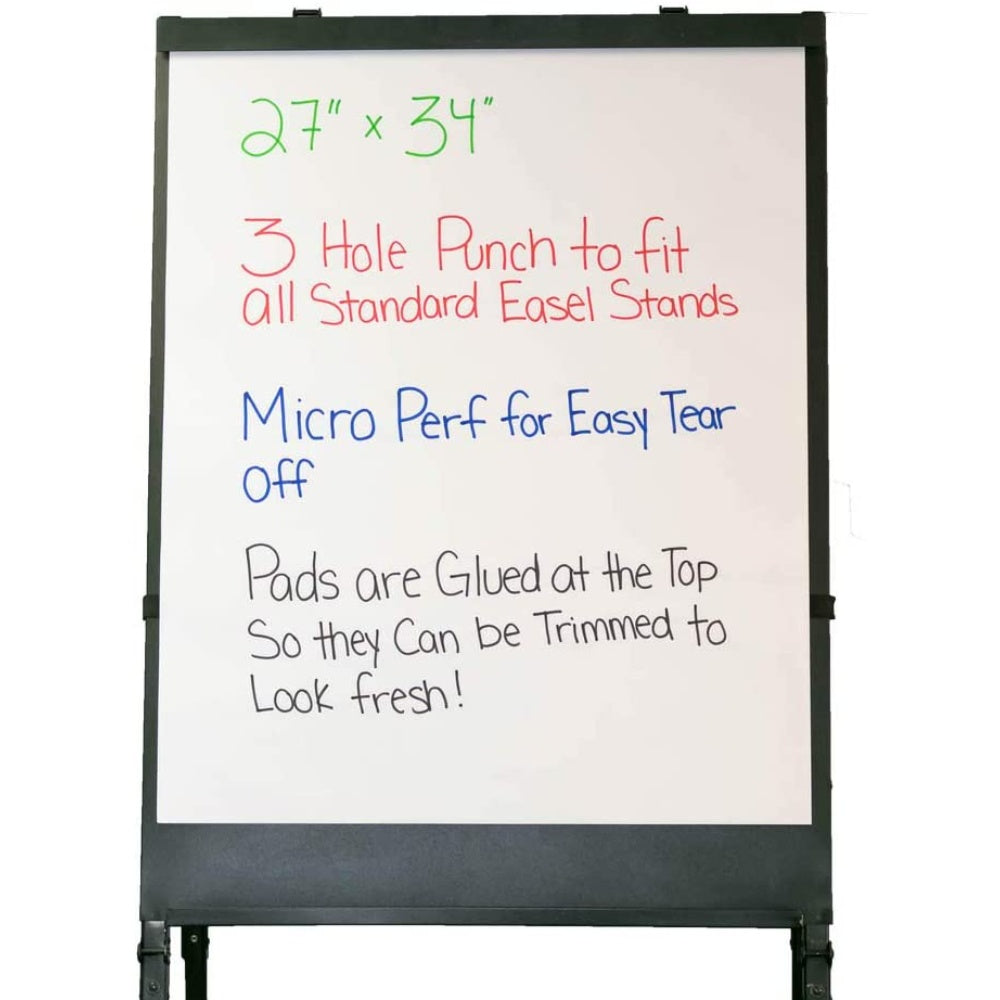 27" x 34"
3 Hole Punch to fit
all Standard Easel Stands
Micro Perf for Easy Tear
Off
Pads are Glued at the Top
So they Can be Trimmed to
Look fresh!